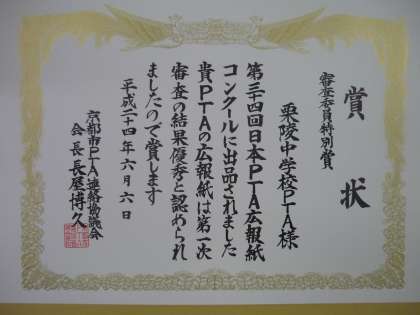 賞状
審査委員特別賞
栗陵中学校PTA様
第三四回日本PTA広報紙
コンクールに出品されました
貴PTAの広報紙は第一次
審査の結果優秀と認められ
ましたので賞します
平成二十四年六月六日
京都市PTA連絡協議会
会長 長屋博久